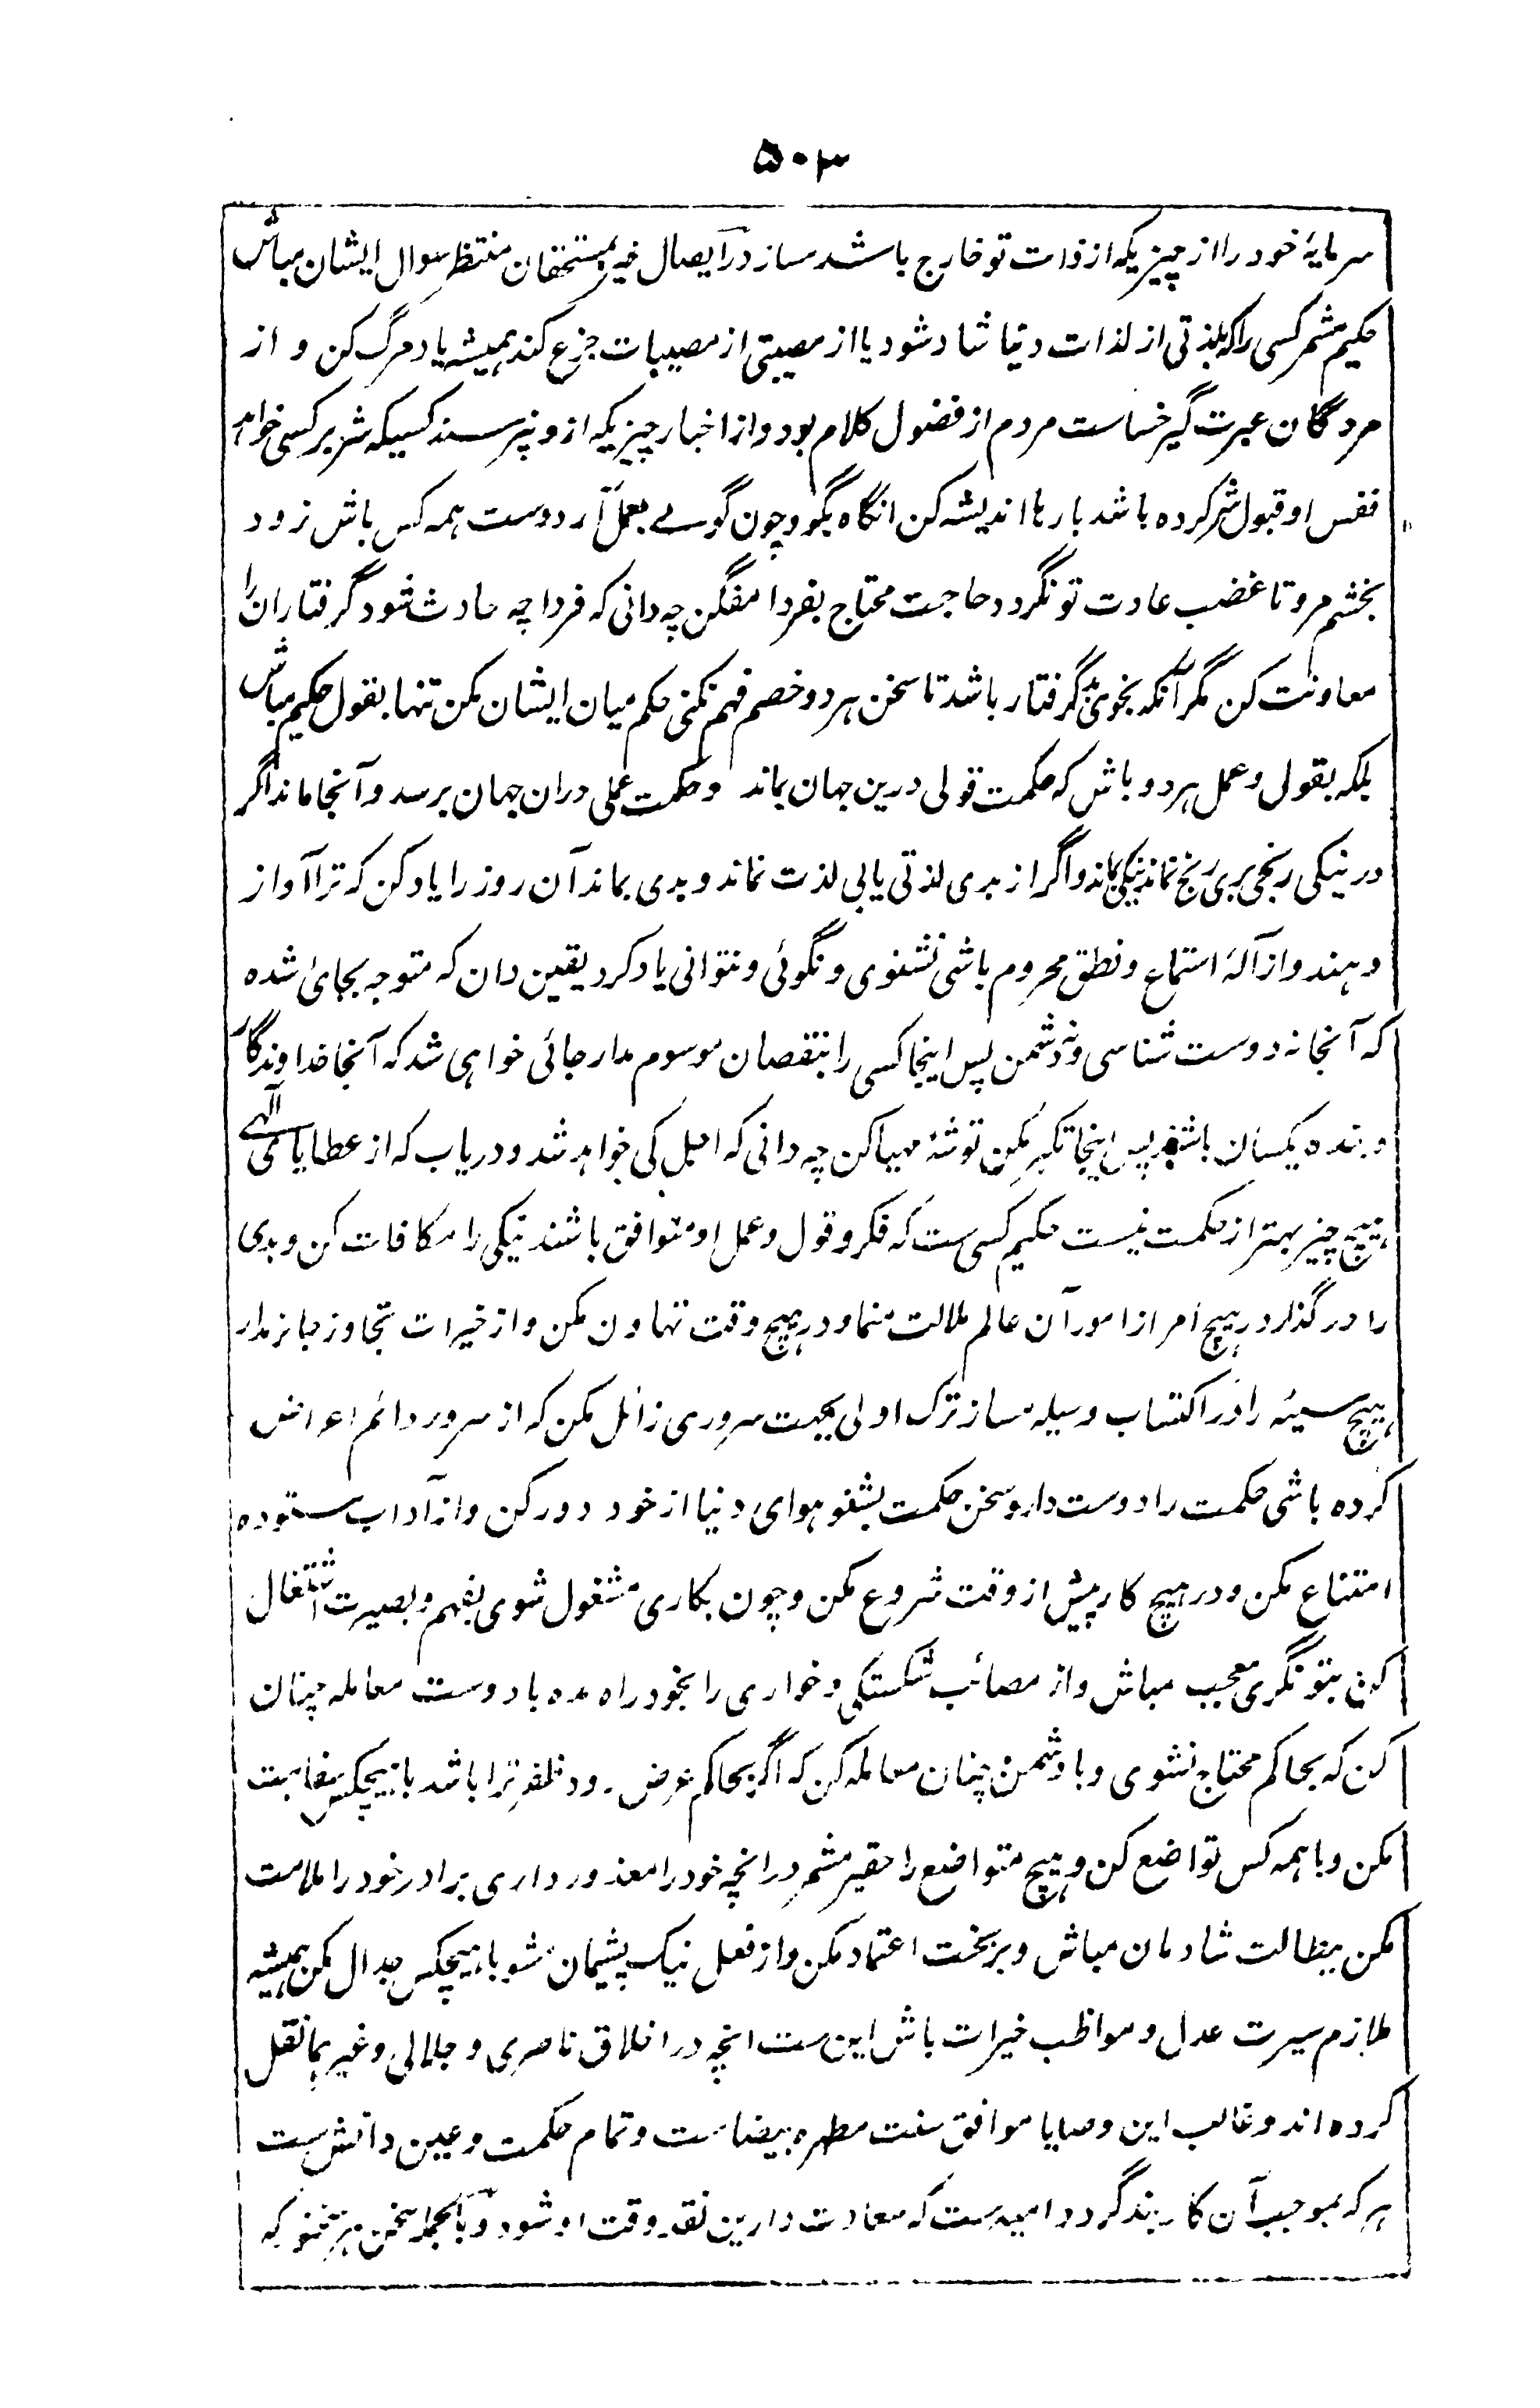 ۵۰۳
سرمایهٔ خود را از چیزیکه از ذات تو خارج باشد مساز در ایصال خیر بمستحقان منتظر سوال ایشان مباش
حکیم مشمر کسی را که بلذتی از لذات دنیا شاد شود یا از مصیبتی از مصیبات جزع کند همیشه یاد مرگ کن و از
مردگان عبرت گیر خساست مردم از فضول کلام بود و از اخبار چیزیکه ازو نپرسند کسیکه شر بر کسی خواهد
نفس او قبول شر کرده باشد بارها اندیشه کن انگاه بگو و چون گوئے بعمل آر دوست همه کس باش زود
بخشم مرو تا غضب عادت تو نگردد حاجت محتاج بفردا مفگن چه دانی که فردا چه حادث شود گرفتاران را
معاونت کن مگر آنکه بخوی بد گرفتار باشد تا سخن هر دو خصم فهم نکنی حکم میان ایشان مکن تنها بقول حکیم مباش
بلکه بقولی و عمل هر دو باش که حکمت قولی درین جهان بماند و حکمت عملی دران جهان برسد و آنجا ماند اگر
در نیکی رنجی بری رنج نماند نیکی بماند و اگر از بدی لذتی یابی لذت نماند و بدی بماند آن روز را یاد کن که ترا آواز
دهند و از آلهٔ استماع و نطق محروم باشی نشنوی و نگوئی و نتوانی یاد کرد یقین دان که متوجه بجائ شده
که آنجا نه دوست شناسی و نه دشمن پس اینجا کسی را بنقصان موسوم مدار جائی خواهی شد که آنجا خداوندگار
و بنده یکسان باشند پس اینجا تکبر مکن توشهٔ مهیا کن چه دانی که اجل کی خواهد شد و دریاب که از عطایای الٓهے
هیچ چیز بهتر از حکمت نیست حکیم کسی ست که فکر و قول و عمل او متوافق باشند نیکی را مکافات کن و بدی
را در گذار در هیچ امر از امور آن عالم ملالت منما و در هیچ وقت تهاون مکن و از خیرات تجاوز جایز مدار
هیچ سیئه را در اکتساب وسیله مساز ترک اولی بجهت سروری زائل مکن که از سرور دائم اعراض
کرده باشی حکمت را دوست دار و سخن حکمت بشنو هوای دنیا از خود دور کن و از آداب ستوده
امتناع مکن و در هیچ کار پیش از وقت شروع مکن و چون بکاری مشغول شوی بفهم و بصیرت اشتغال
کن بتونگری معجب مباش و از مصائب شکستگی و خواری را بخود راه مده با دوست معامله چنان
کن که بحاکم محتاج نشوی و با دشمن چنان معامله کن که اگر بحاکم عرض رود ظفر ترا باشد با هیچکس سفاهت
مکن و با همه کس تواضع کن و هیچ متواضع را حقیر مشمر در انچه خود را معذور داری برادر خود را ملامت
مکن ببطالت شادمان مباش و بر بخت اعتماد مکن و از فعل نیک پشیمان مشو با هیچکس جدال مکن همیشه
ملازم سیرت عدل و مواظب خیرات باش این ست انچه در اخلاق ناصری و جلالی و غیرهما نقل
کرده اند و غالب این وصایا موافق سنت مطهره بیضاست و تمام حکمت و عین دانش ست
هر که بموجب آن کاربند گردد امیدست که سعادت دارین نقد وقت او شود و بالجمله سخن